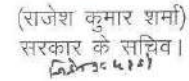 (राजेश कुमार शर्मा)
सरकार के सचिव।